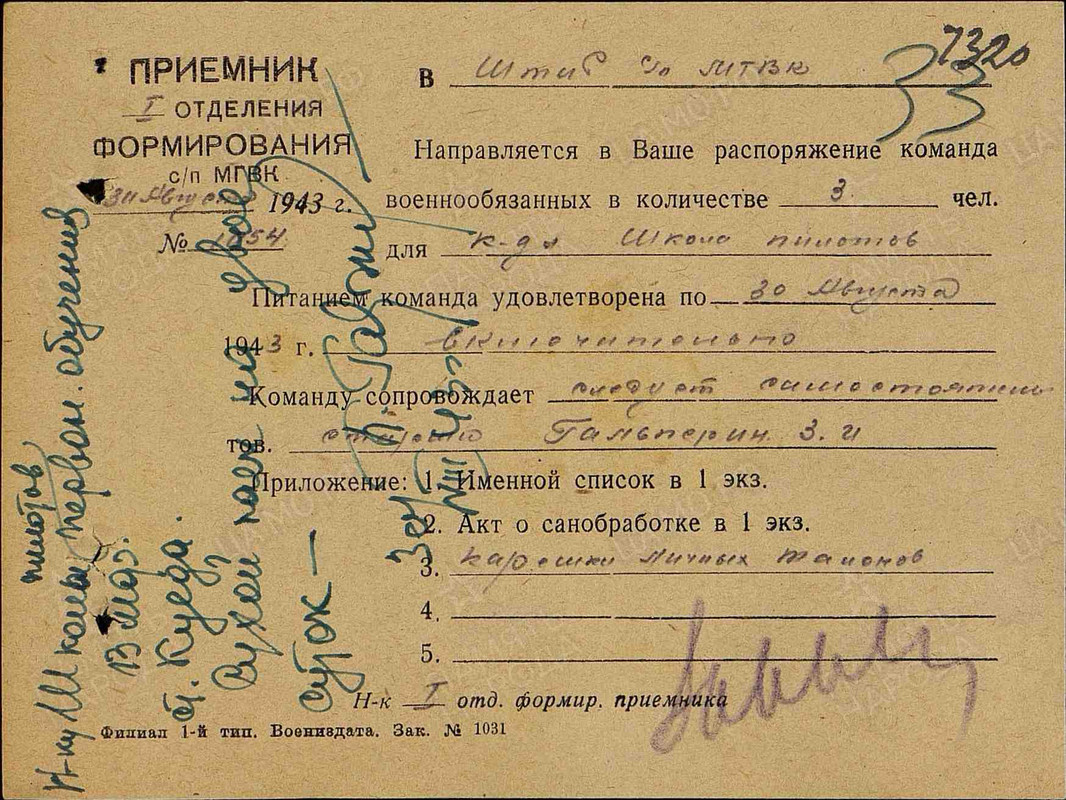 ПРИЕМНИК
I ОТДЕЛЕНИЯ
ФОРМИРОВАНИЯ
с/п МГВК
30 Августа 1943 г.
№ 1854
7320
33
В Штаб с/п МГВК
Направляется в Ваше распоряжение команда
военнообязанных в количестве 3 чел.
для к-да Школа пилотов
Питанием команда удовлетворена по 30 Августа
1943 г. включительно
Команду сопровождает следует самостоятельн
тов. старший Гальперин З. И
Приложение: 1. Именной список в 1 экз.
2. Акт о санобработке в 1 экз.
3. корешки личных талонов
4.
5.
Н-к I отд. формир. приемника
Филиал 1-й тип. Воениздата. Зак. № 1031
Н-ку Школы первон. обучения
пилотов
ст. Куеда.
Сухой паек на двое
суток —
30/VIII 43.